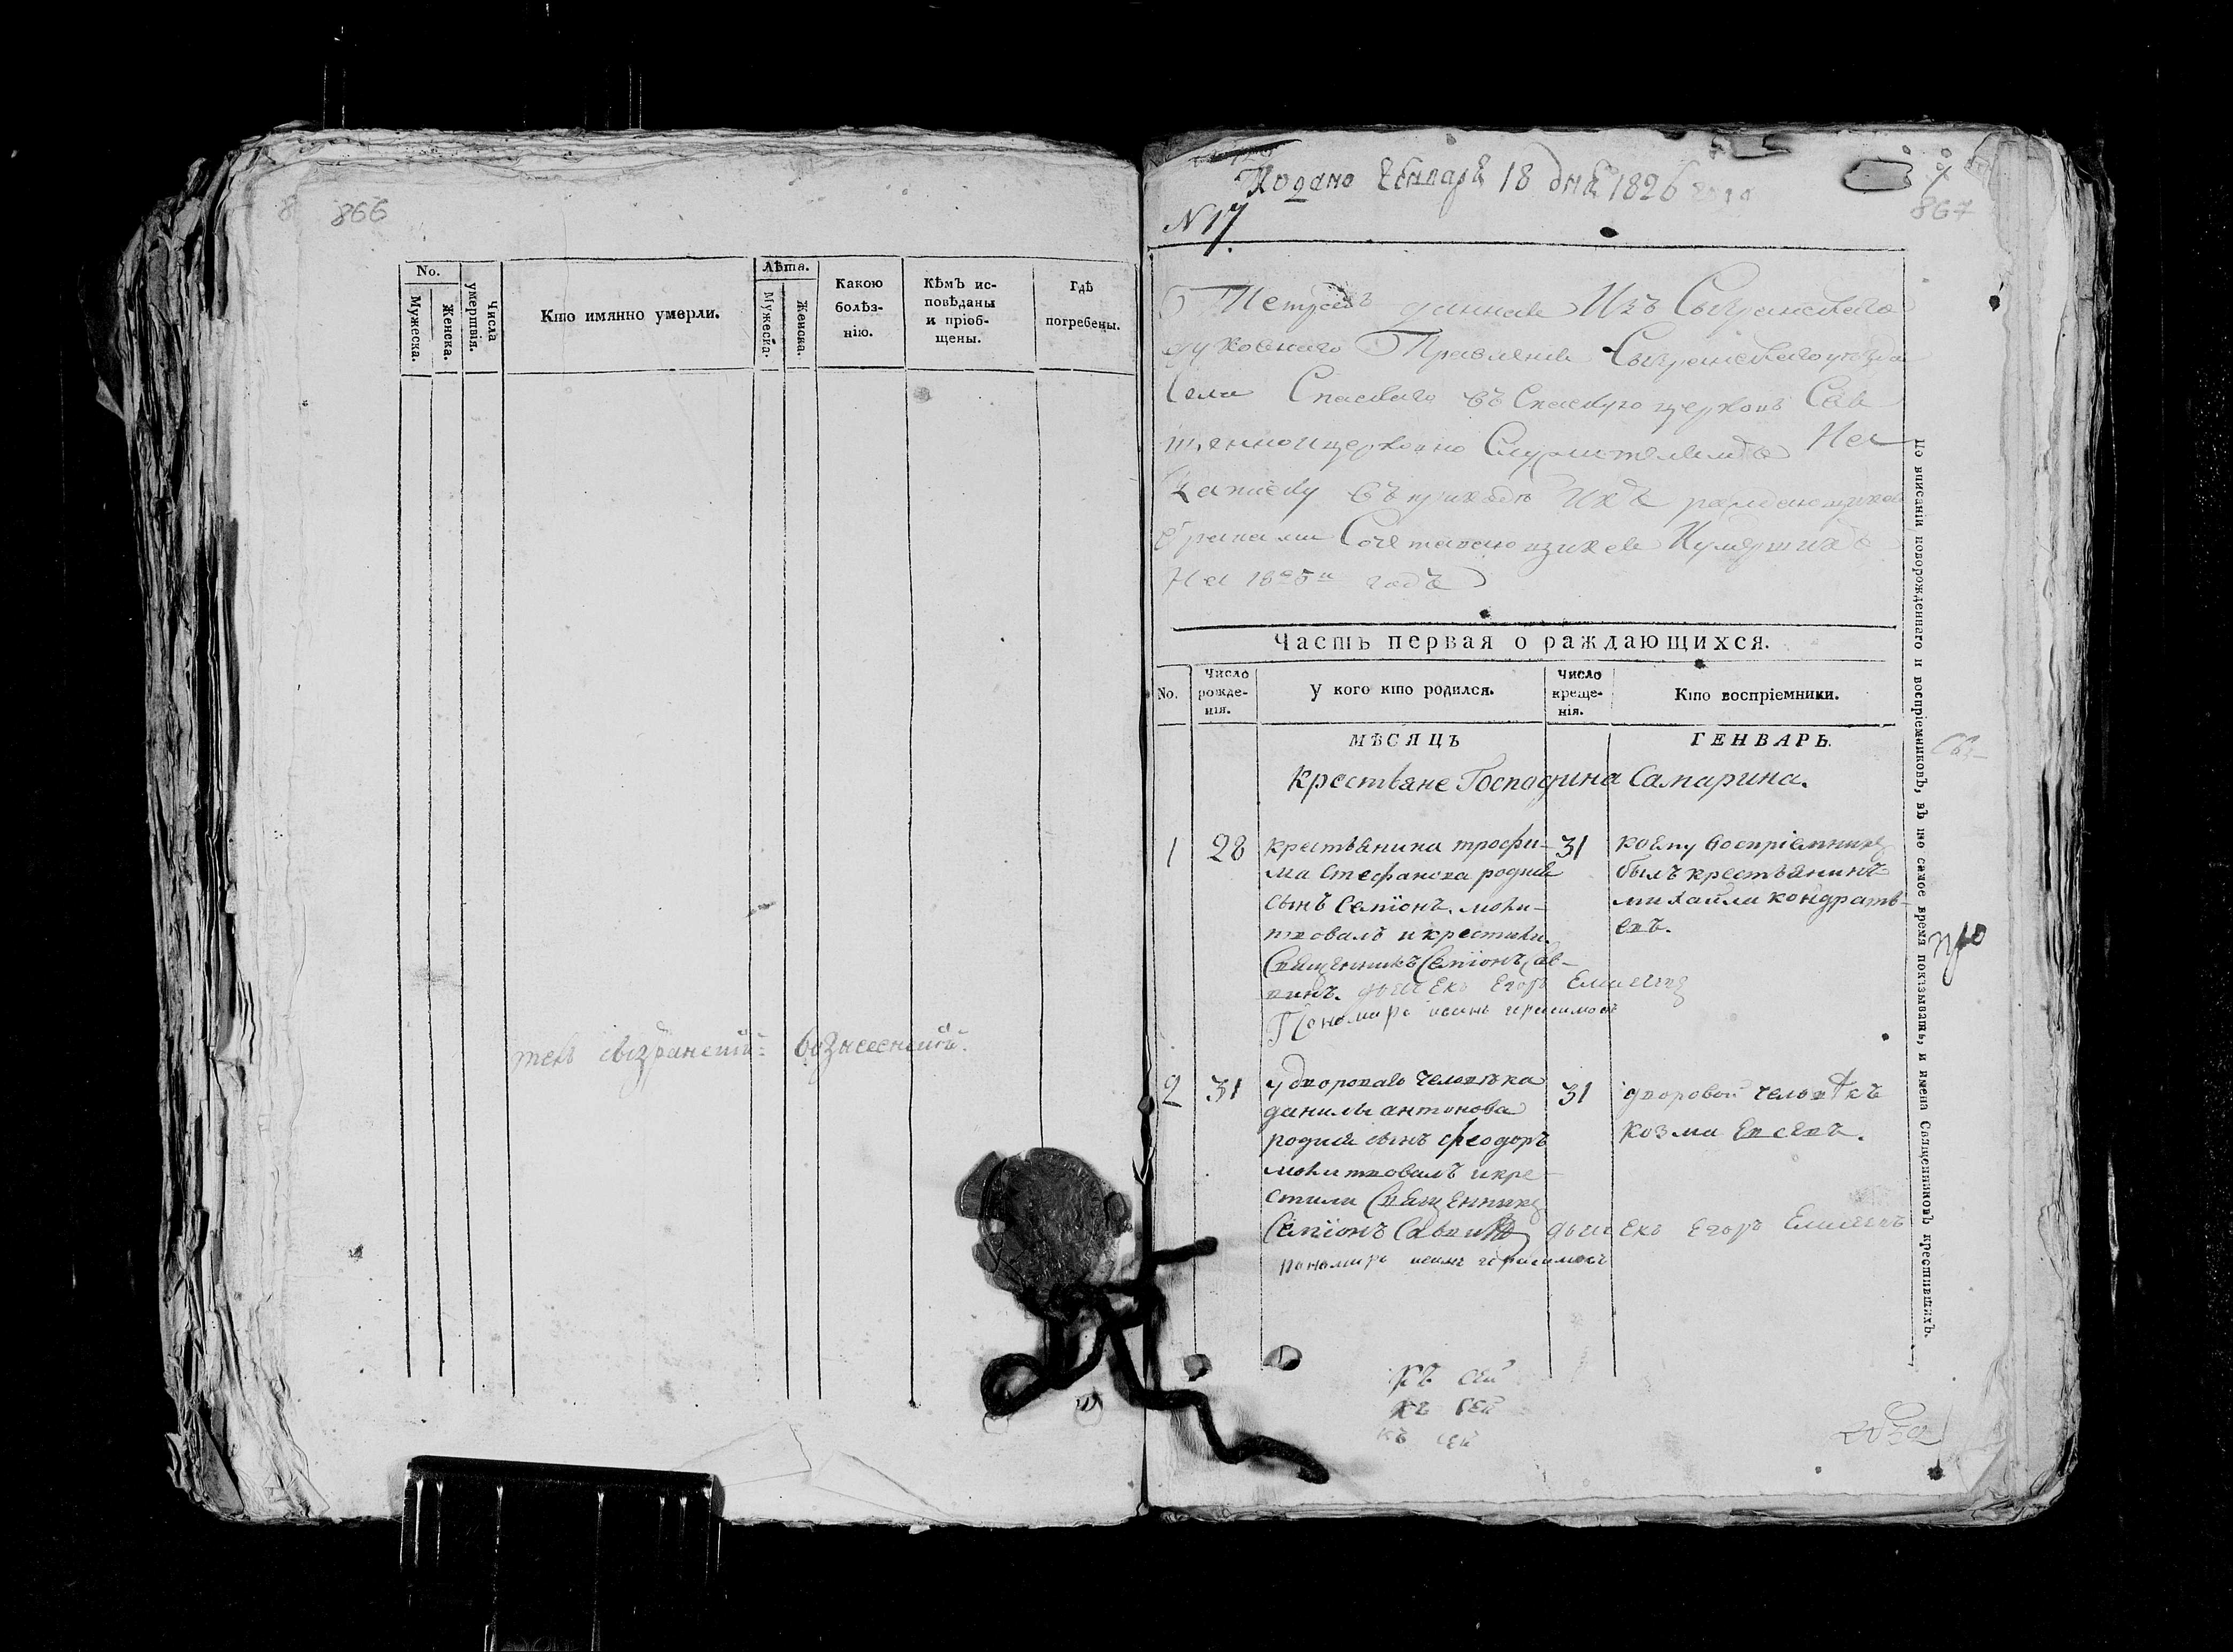 8 866
No.
Мужеска.
Женска.
Числа умертвія.
Кто имянно умерли.
Лѣта.
Мужеска.
Женска.
Какою
болѣз-
нію.
Кѣмъ ис-
повѣданы
и пріоб-
щены.
Гдѣ
погребены.
вознесенской
Подано Генваря 18 дня 1826 года
867
N 17.
Метрика данная Изъ Сызранскаго
духовнаго Правления Сызранскаго уѣзда
Села Спаскаго въ Спаскую церковь Свя
щенноцерковно Служителямъ На
Записку въ приходѣ Ихъ раждающихся
браками Сочетавающихся Иумершихъ
На 1825й годъ
Часть первая о раждающихся.
No.
Число
рожде-
нія.
У кого кто родился.
Число
креще-
нія.
Кто воспріемники.
МѢСЯЦЪ ГЕНВАРЬ.
Крестьяне Господина Самарина.
1 28 31
крестьянина трофи-
ма Стефанова родился
сынъ Семіонъ. моли-
твовалъ и крестили
Священникъ Семіонъ Сав-
винъ. дьячекъ Егоръ
Пономарь иванъ герасимовъ
коему воспріемникъ
былъ крестьянинъ
михайла кондрать-
евъ.
2 31 31
у двороваго человѣка
данилы антонова
родился сынъ феодоръ
молитвовалъ и кре-
стили Священникъ
Семіонъ Саввинъ дьячекъ Егоръ
пономарь иванъ герасимовъ
дворовой человѣкъ
козма Евсевъ.
По вписаніи новорожденнаго и воспріемниковъ, въ то самое время показывать, и имена Священниковъ крестившихъ.
къ сей
къ сей
къ сей